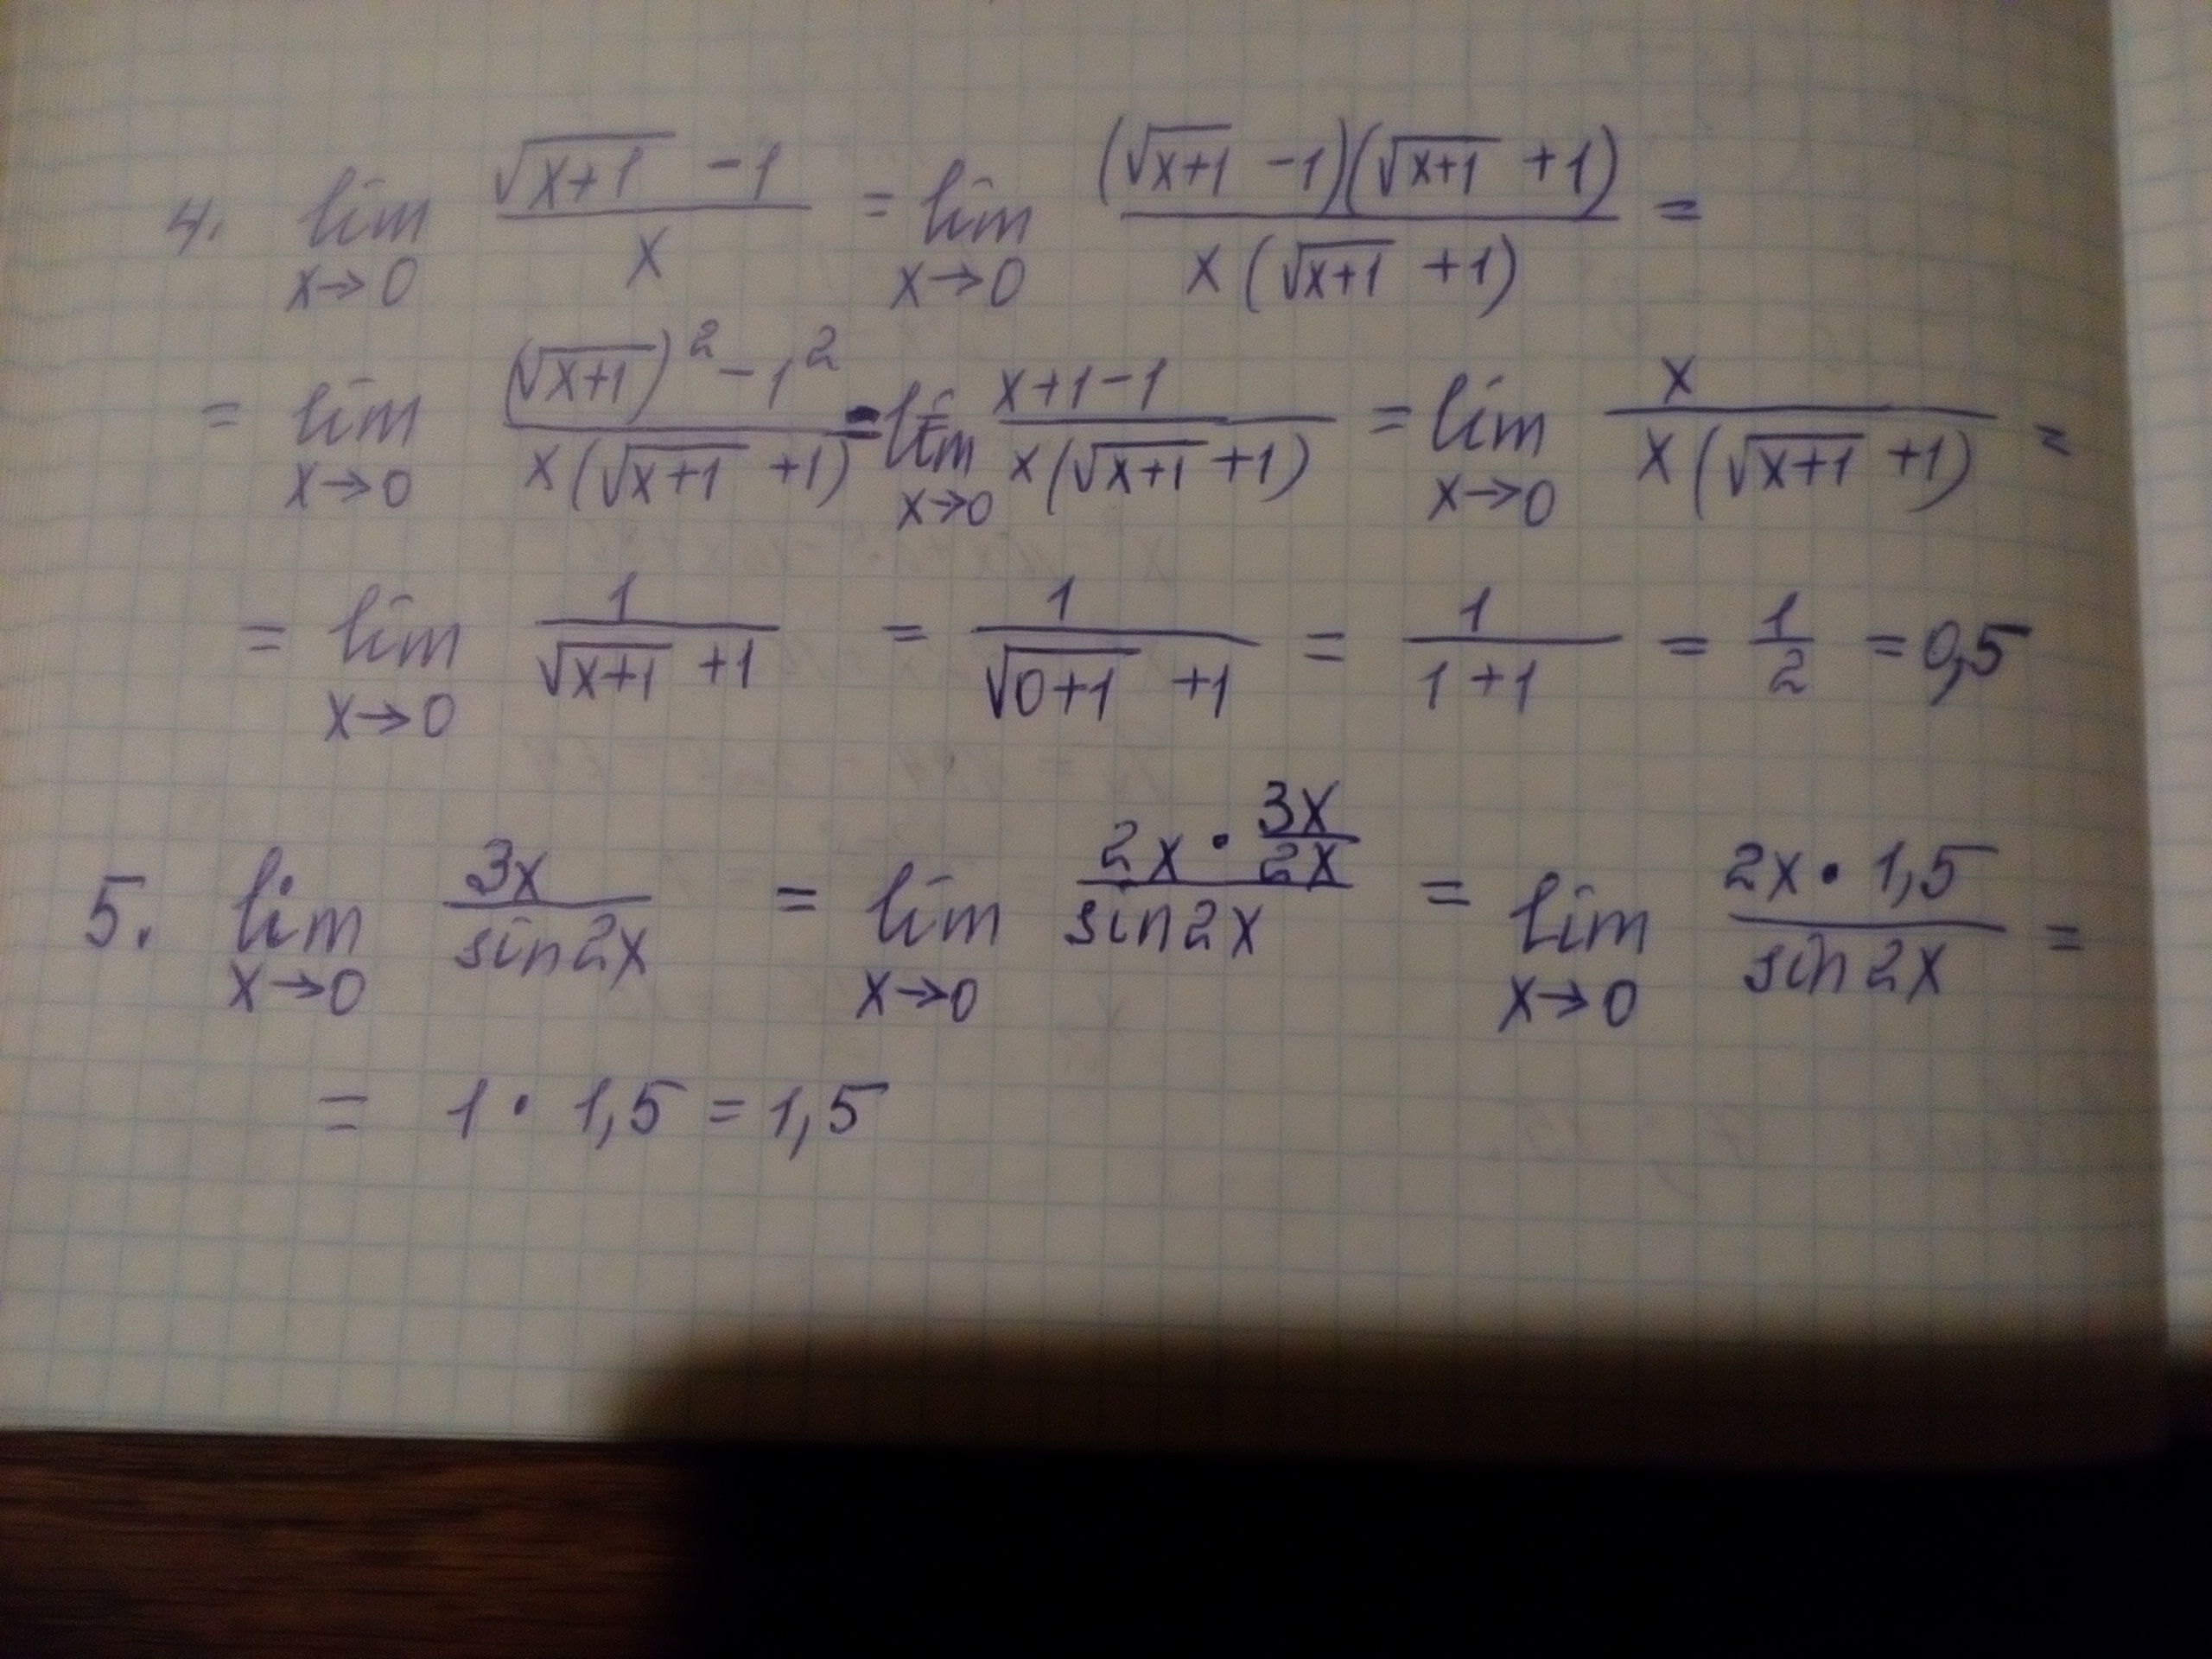 4. lim x→0 (√(x+1) - 1)/x = lim x→0 ((√(x+1) - 1)(√(x+1) + 1))/(x(√(x+1) + 1)) =
= lim x→0 ((√(x+1))² - 1²)/(x(√(x+1) + 1)) = lim x→0 (x+1-1)/(x(√(x+1) + 1)) = lim x→0 x/(x(√(x+1) + 1)) =
= lim x→0 1/(√(x+1) + 1) = 1/(√(0+1) + 1) = 1/(1+1) = 1/2 = 0,5
5. lim x→0 3x/sin2x = lim x→0 (2x · 3x/2x)/sin2x = lim x→0 (2x · 1,5)/sin2x =
= 1 · 1,5 = 1,5